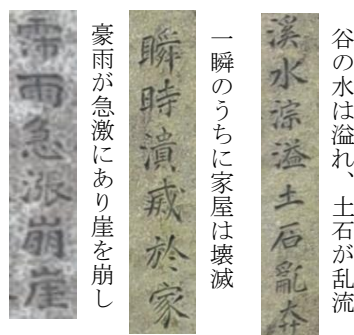 谷の水は溢れ、土石が乱流
溪水淙溢土石亂
一瞬のうちに家屋は壊滅
瞬時潰烕於家
豪雨が急激にあり崖を崩し
雨急漲崩崖